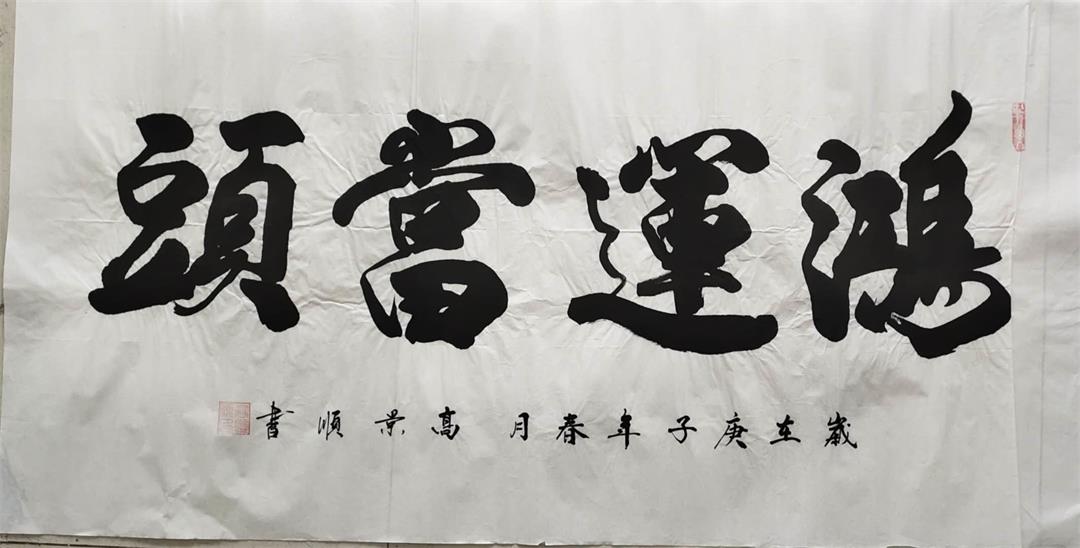 鴻運當頭
歲在庚子年春月 高景順書